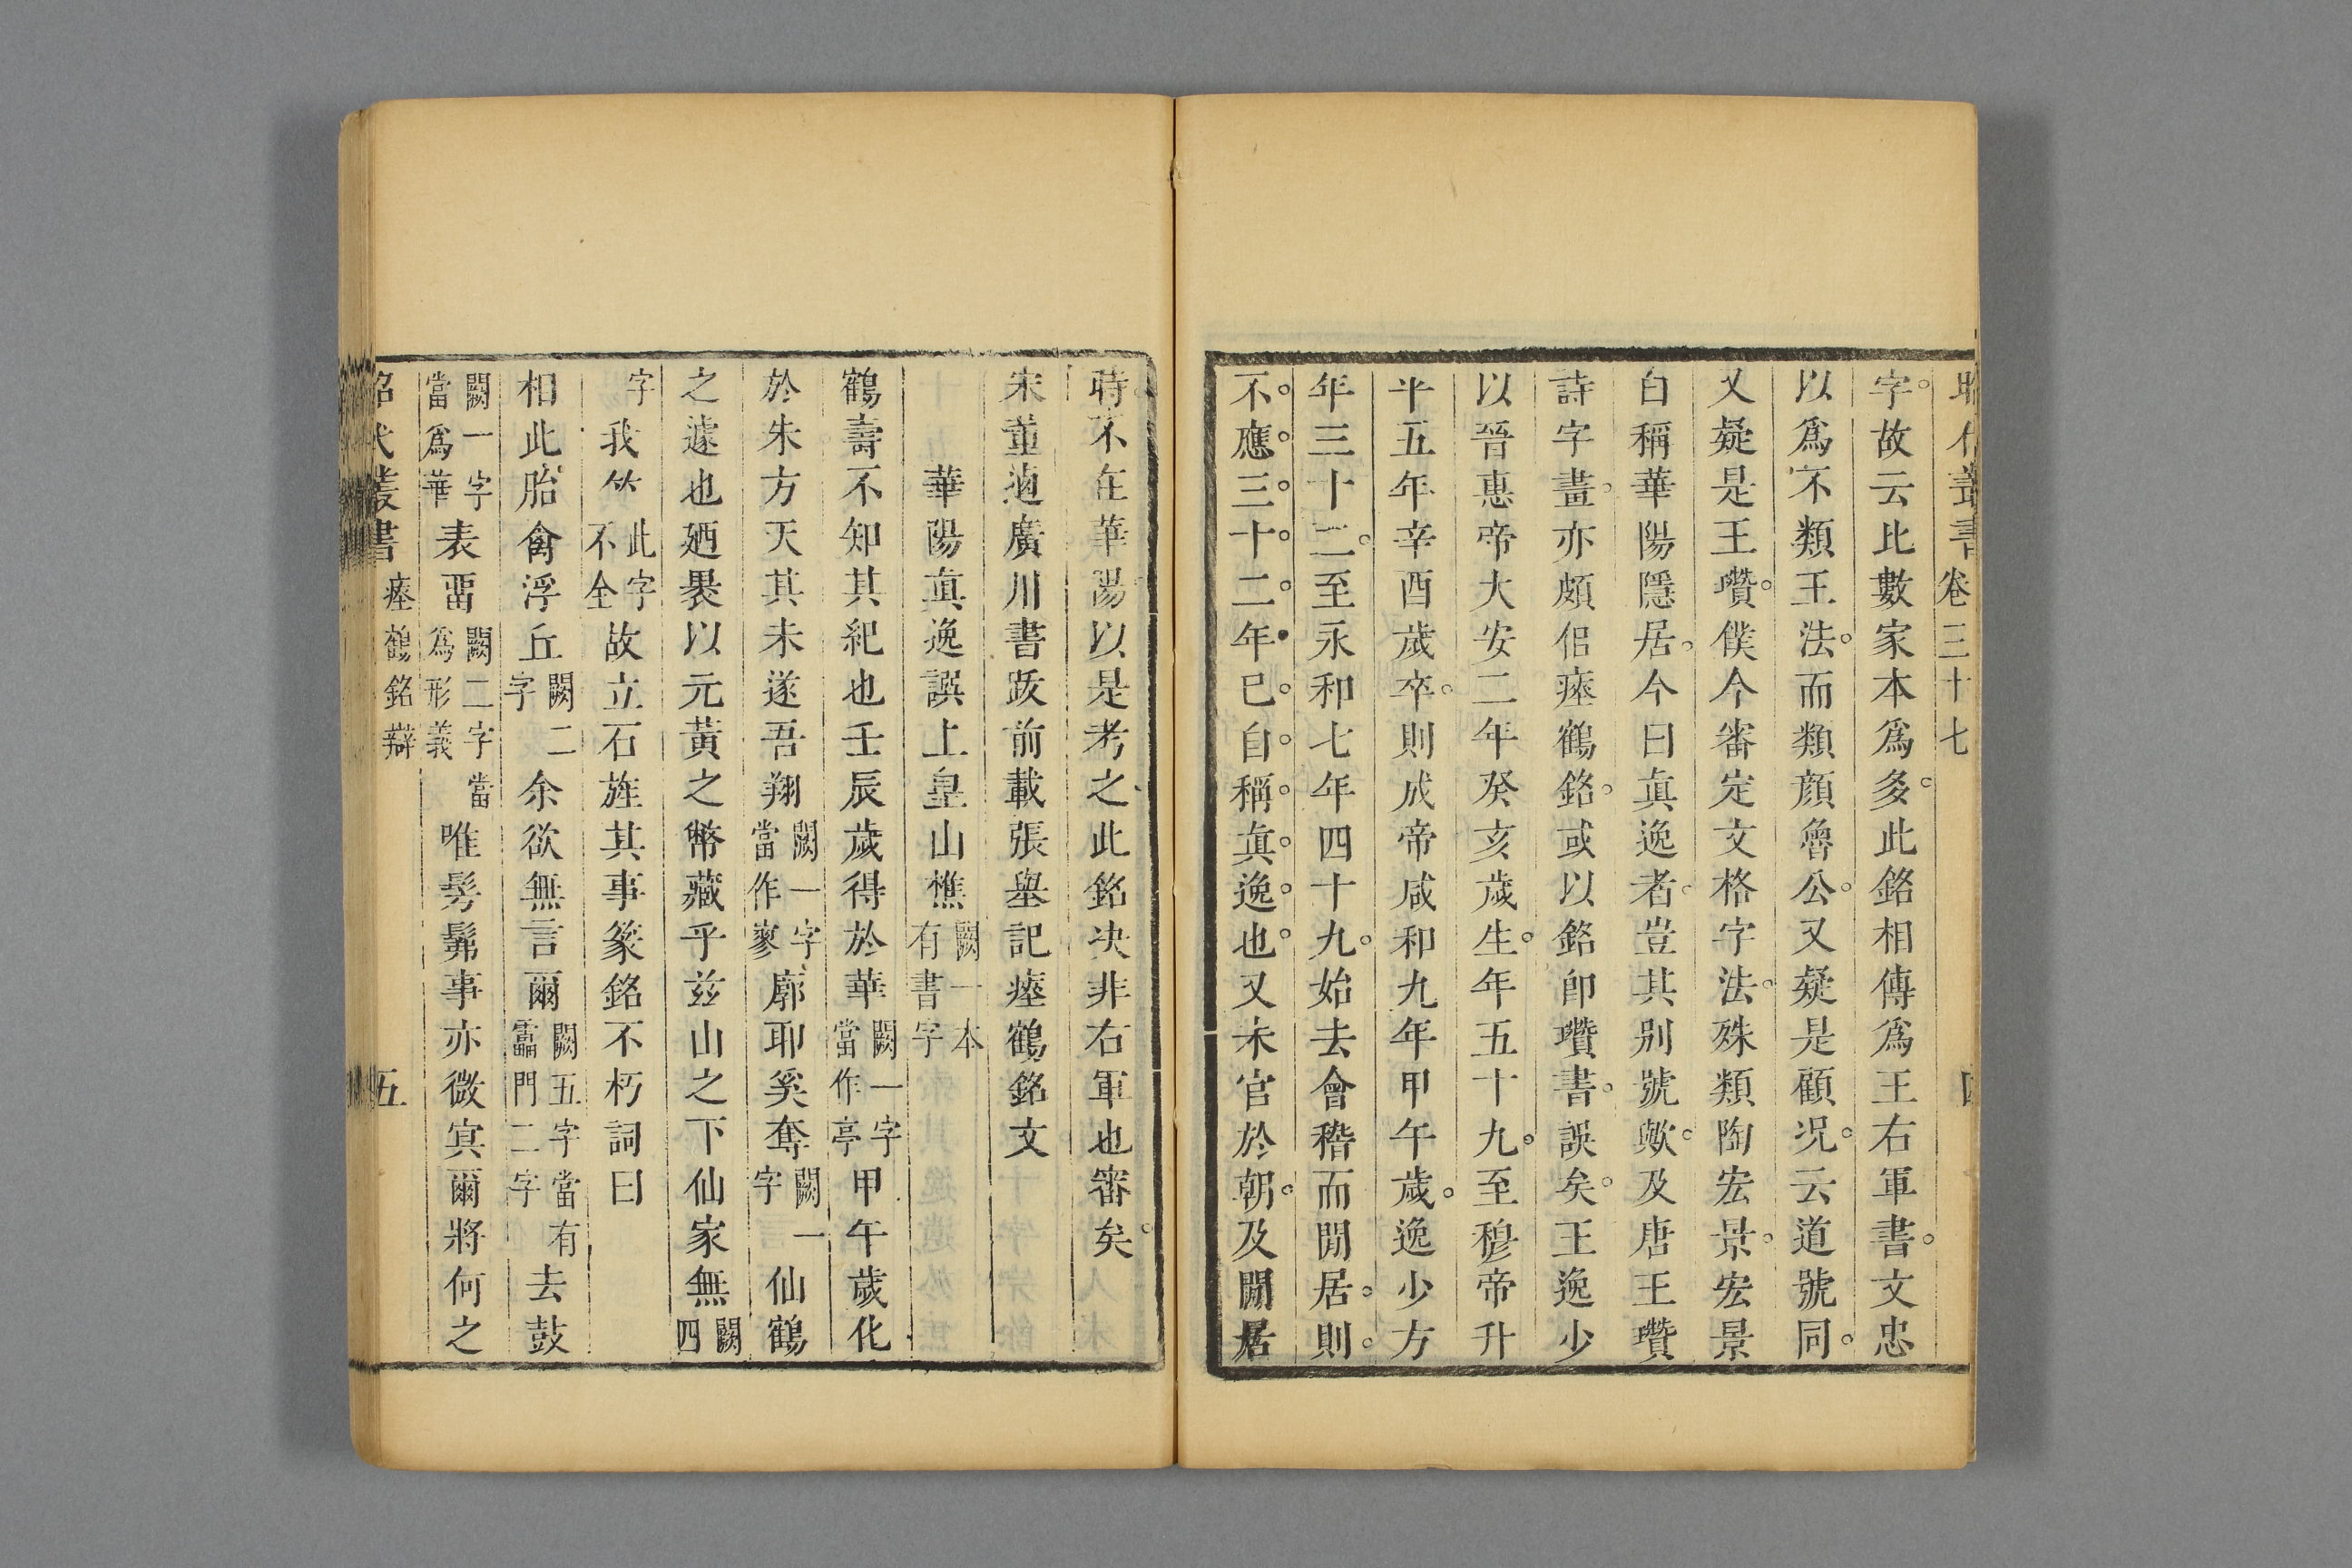 昭代叢書卷三十七 四
字故云比數家本爲多此銘相傳爲王右軍書文忠
以爲不類王法而類顏魯公又疑是顧況云道號同
又疑是王瓚僕今審定文格字法殊類陶宏景宏景
自稱華陽隱居今曰真逸者豈其别號歟及唐王瓚
詩字畫亦頗佀瘞鶴銘或以銘即瓚書誤矣王逸少
以晉惠帝大安二年癸亥歲生年五十九至穆帝升
平五年辛酉歲卒則成帝咸和九年甲午歲逸少方
年三十二至永和七年四十九始去會稽而閒居則
不應三十二年已自稱真逸也又未官於朝及閒居
時不在華陽以是考之此銘决非右軍也審矣
宋董逌廣川書跋前載張壆記瘞鶴銘文
華陽真逸譔上皇山樵闕一本有書字
鶴壽不知其紀也壬辰歲得於華闕一字當作亭甲午歲化
於朱方天其未遂吾翔闕一字當作寥廓耶奚奪闕一字仙鶴
之遽也廼褁以元黃之幣藏乎兹山之下仙家無闕四
字我竹此字不全故立石旌其事篆銘不朽詞曰
相此胎禽浮丘闕二字余欲無言爾闕五字當有靁門二字去鼓
闕一字當爲華表畱闕二字當爲形義唯髣髴事亦微㝠爾將何之
昭代叢書 瘞鶴銘辯 五